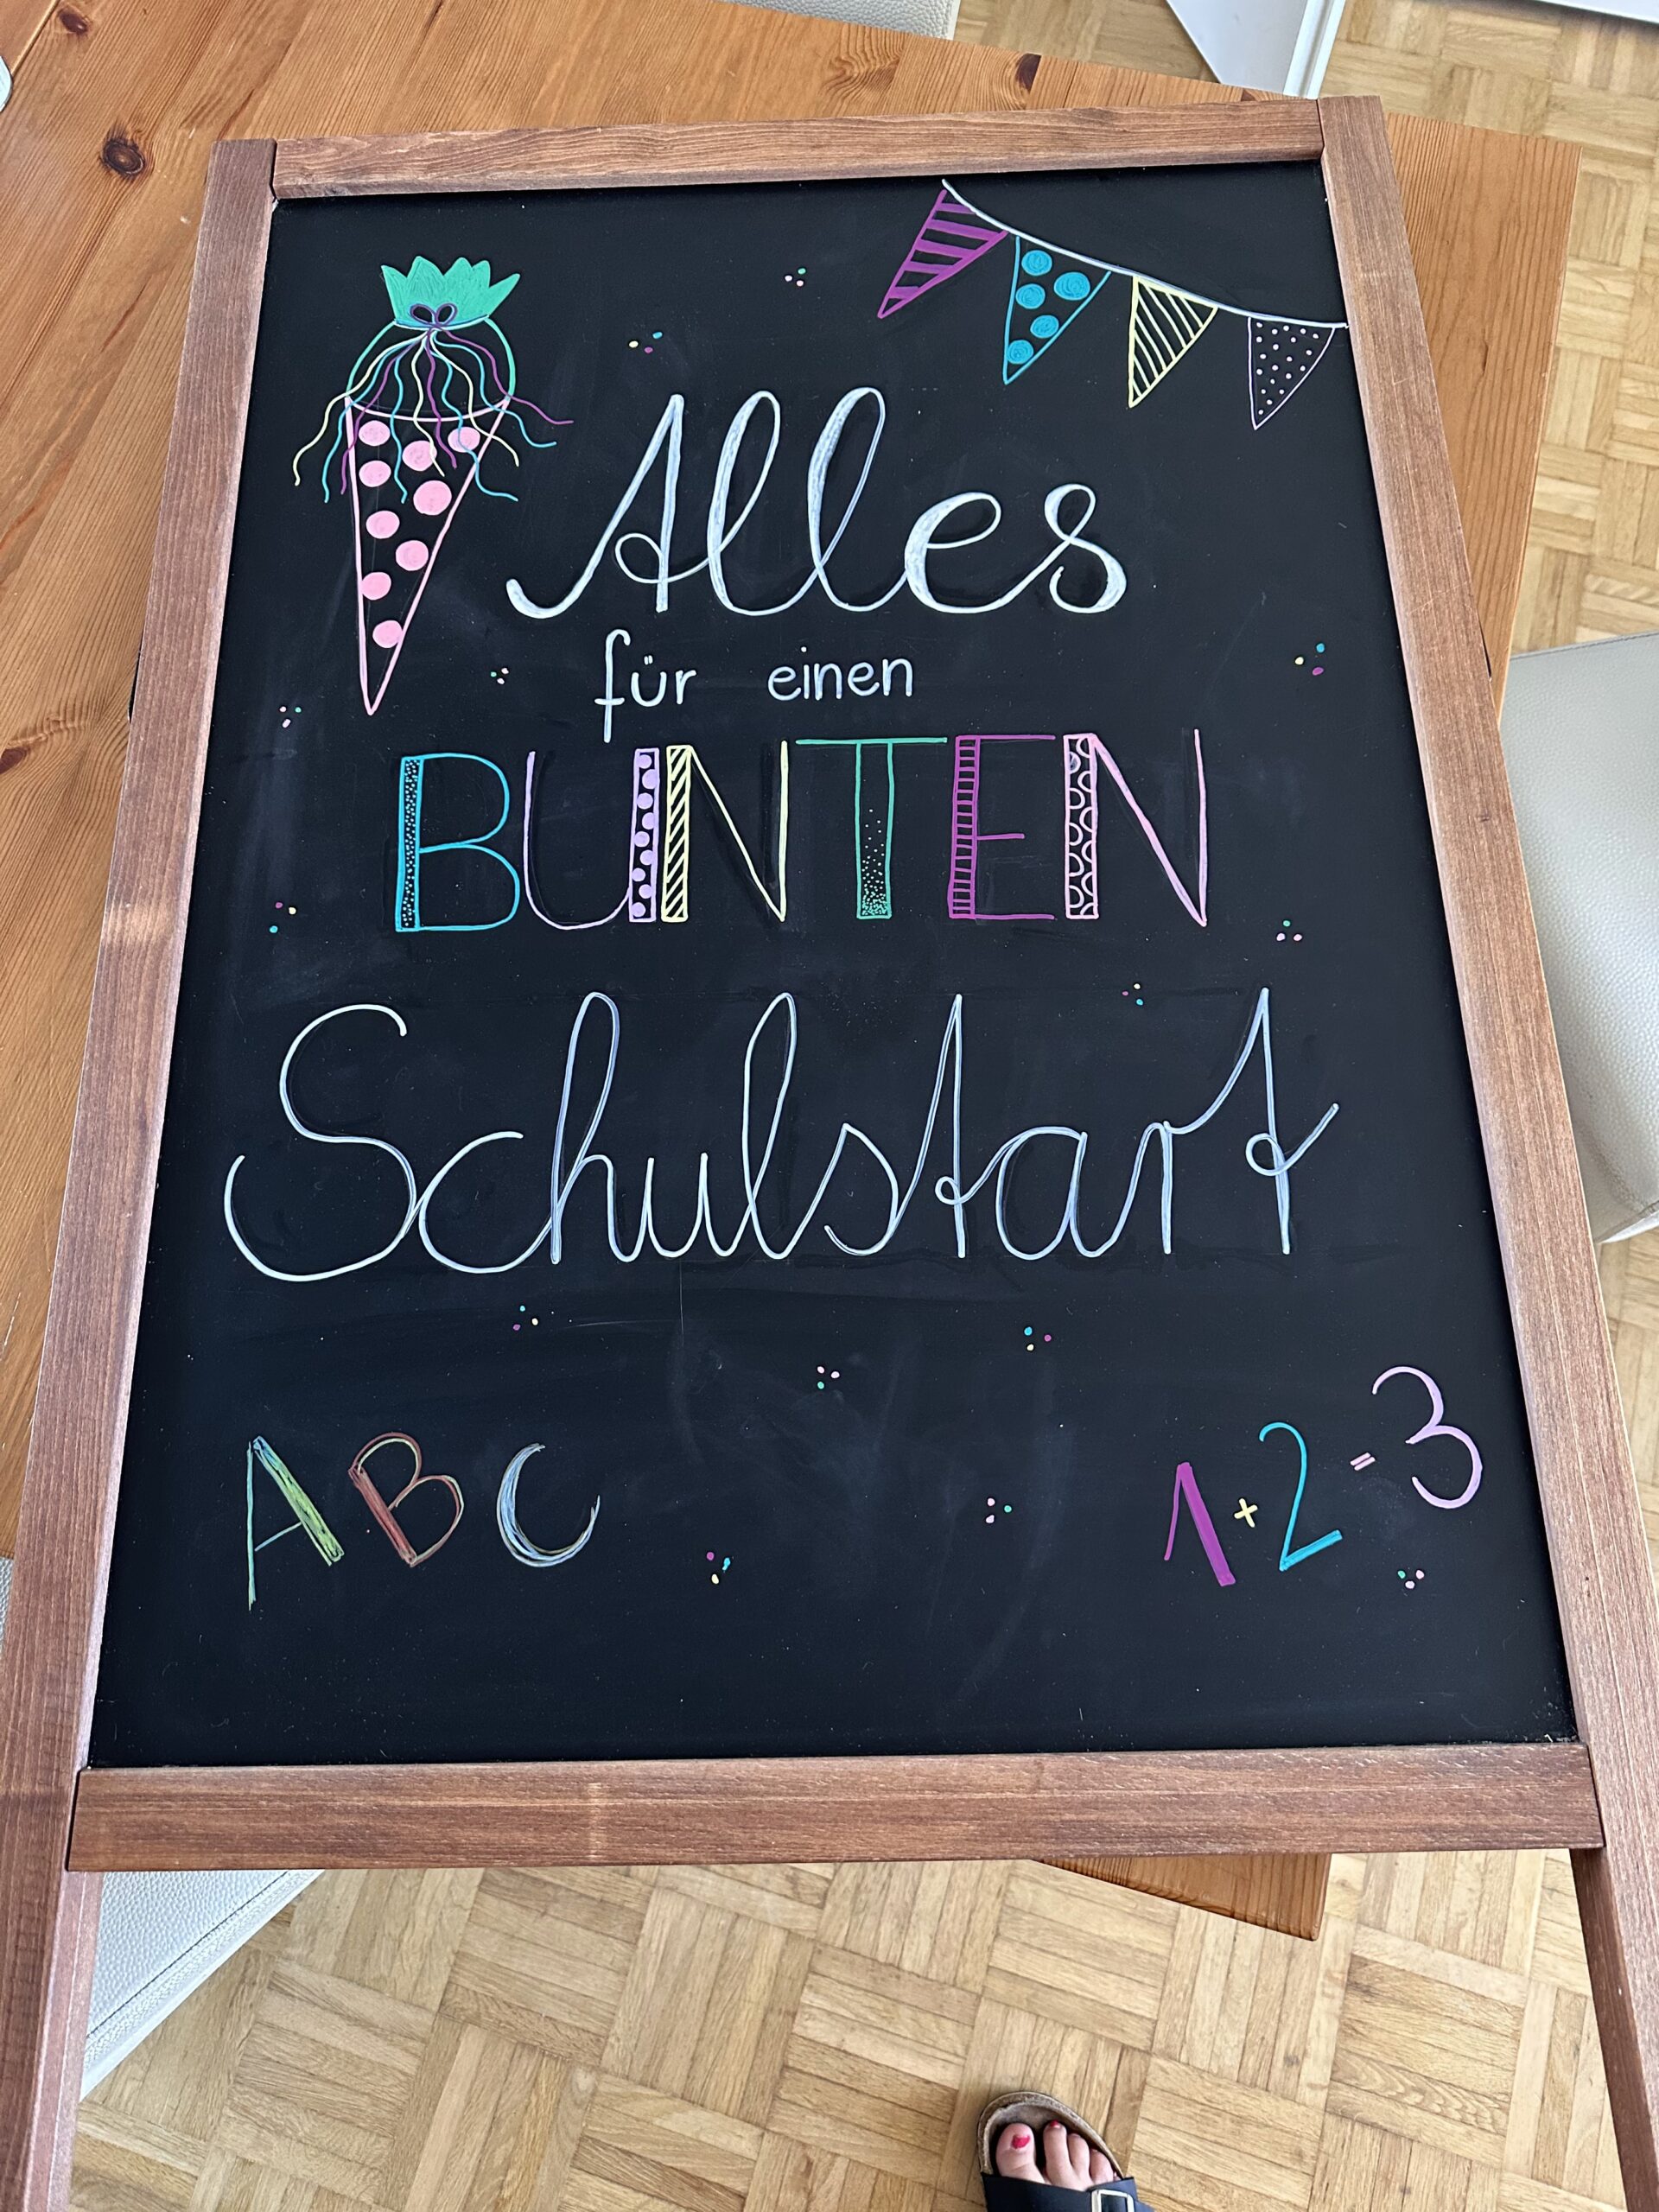 Alles
für einen
BUNTEN
Schulstart
ABC
1+2=3